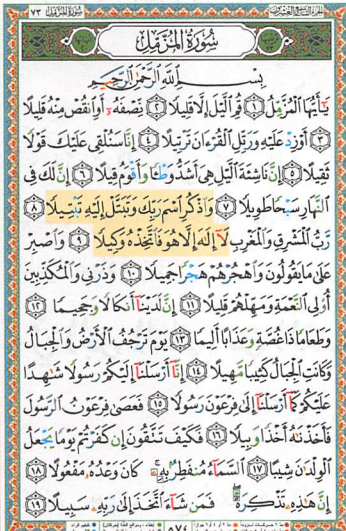 الجزء التاسع والعشرون سورة المزمل ٧٣
سُورَةُ المُزَّمِّل
بِسْمِ اللَّهِ الرَّحْمَٰنِ الرَّحِيمِ
يَا أَيُّهَا الْمُزَّمِّلُ ١ قُمِ الَّيْلَ إِلَّا قَلِيلًا ٢ نِّصْفَهُ أَوِ انقُصْ مِنْهُ قَلِيلًا
٣ أَوْ زِدْ عَلَيْهِ وَرَتِّلِ الْقُرْءَانَ تَرْتِيلًا ٤ إِنَّا سَنُلْقِي عَلَيْكَ قَوْلًا
ثَقِيلًا ٥ إِنَّ نَاشِئَةَ الَّيْلِ هِيَ أَشَدُّ وَطْئًا وَأَقْوَمُ قِيلًا ٦ إِنَّ لَكَ فِي
النَّهَارِ سَبْحًا طَوِيلًا ٧ وَاذْكُرِ اسْمَ رَبِّكَ وَتَبَتَّلْ إِلَيْهِ تَبْتِيلًا ٨
رَّبُّ الْمَشْرِقِ وَالْمَغْرِبِ لَا إِلَٰهَ إِلَّا هُوَ فَاتَّخِذْهُ وَكِيلًا ٩ وَاصْبِرْ
عَلَىٰ مَا يَقُولُونَ وَاهْجُرْهُمْ هَجْرًا جَمِيلًا ١٠ وَذَرْنِي وَالْمُكَذِّبِينَ
أُولِي النَّعْمَةِ وَمَهِّلْهُمْ قَلِيلًا ١١ إِنَّ لَدَيْنَا أَنكَالًا وَجَحِيمًا ١٢
وَطَعَامًا ذَا غُصَّةٍ وَعَذَابًا أَلِيمًا ١٣ يَوْمَ تَرْجُفُ الْأَرْضُ وَالْجِبَالُ
وَكَانَتِ الْجِبَالُ كَثِيبًا مَّهِيلًا ١٤ إِنَّا أَرْسَلْنَا إِلَيْكُمْ رَسُولًا شَٰهِدًا
عَلَيْكُمْ كَمَا أَرْسَلْنَا إِلَىٰ فِرْعَوْنَ رَسُولًا ١٥ فَعَصَىٰ فِرْعَوْنُ الرَّسُولَ
فَأَخَذْنَٰهُ أَخْذًا وَبِيلًا ١٦ فَكَيْفَ تَتَّقُونَ إِن كَفَرْتُمْ يَوْمًا يَجْعَلُ
الْوِلْدَٰنَ شِيبًا ١٧ السَّمَاءُ مُنفَطِرٌ بِهِ كَانَ وَعْدُهُ مَفْعُولًا ١٨
إِنَّ هَٰذِهِ تَذْكِرَةٌ فَمَن شَاءَ اتَّخَذَ إِلَىٰ رَبِّهِ سَبِيلًا ١٩
٥٧٤